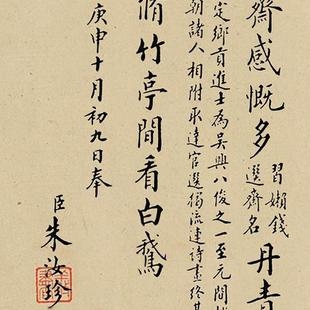 齋感慨多
習嬾錢
選齋名
丹青
定鄉貢進士為吳興八俊之一至元間
朝諸人相附取達官選獨流連詩畫終其
脩竹亭間看白鵞
庚申十月初九日奉
臣朱汝珍